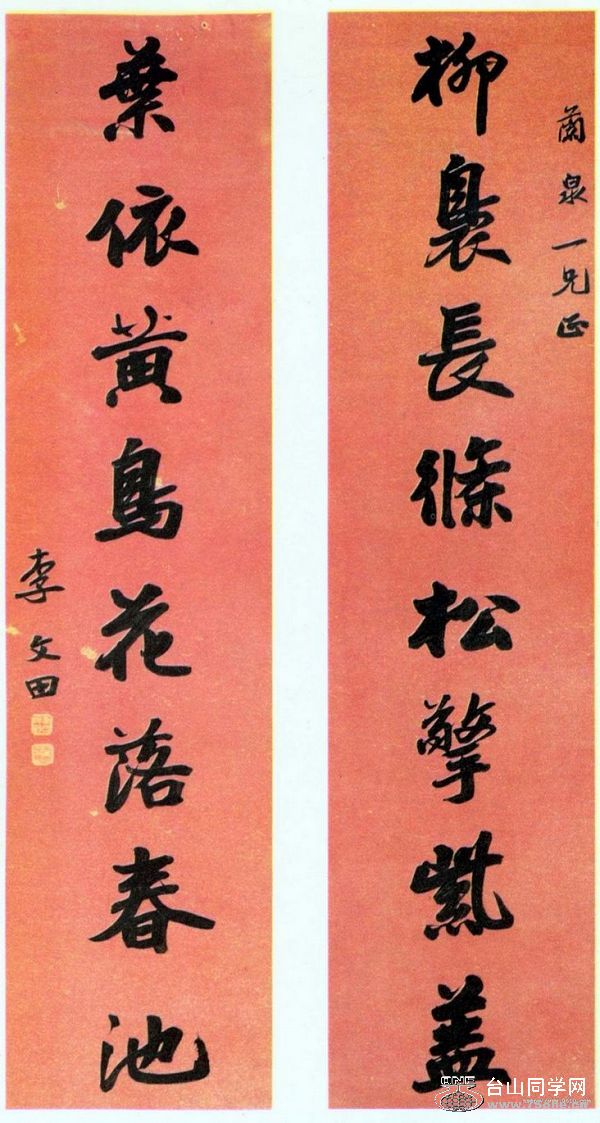 蘭泉一兄正
柳裊長條松擎紫蓋
葉依黃鳥花落春池
李文田
台山同学网